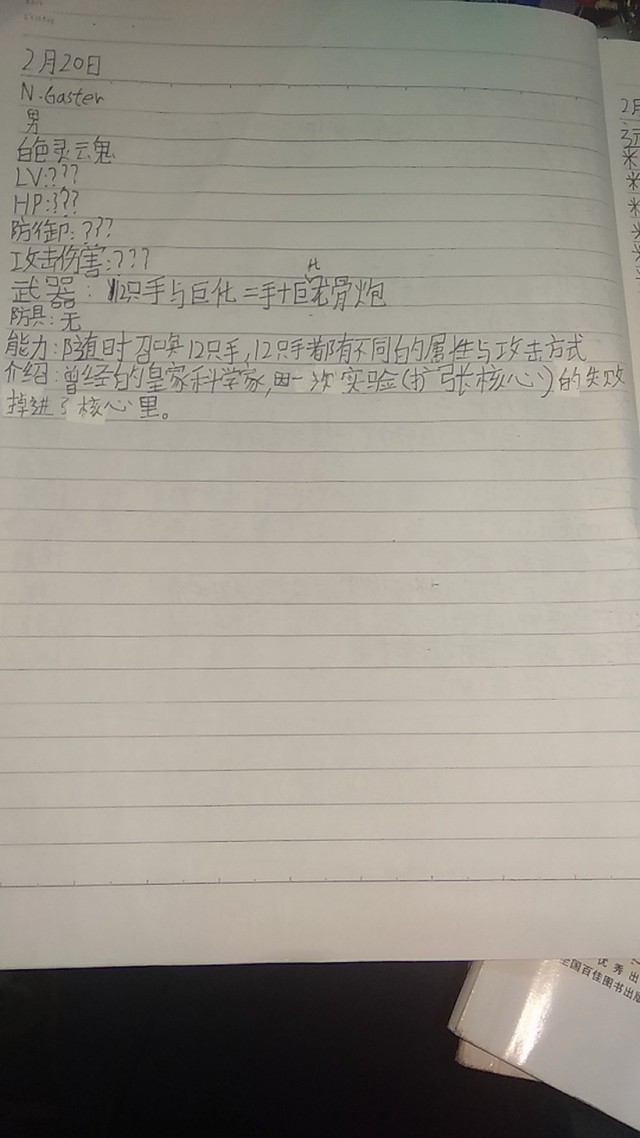 2月20日
N.Gaster
男
白色灵魂
LV:???
HP:???
防御:???
攻击伤害:???
武器:12只手与巨化二手+巨化骨炮
防具:无
能力:随时召唤12只手,12只手都有不同的属性与攻击方式
介绍:曾经的皇家科学家,因一次实验(扩张核心)的失败
掉进了核心里。
2月
优秀出
全国百佳图书出版